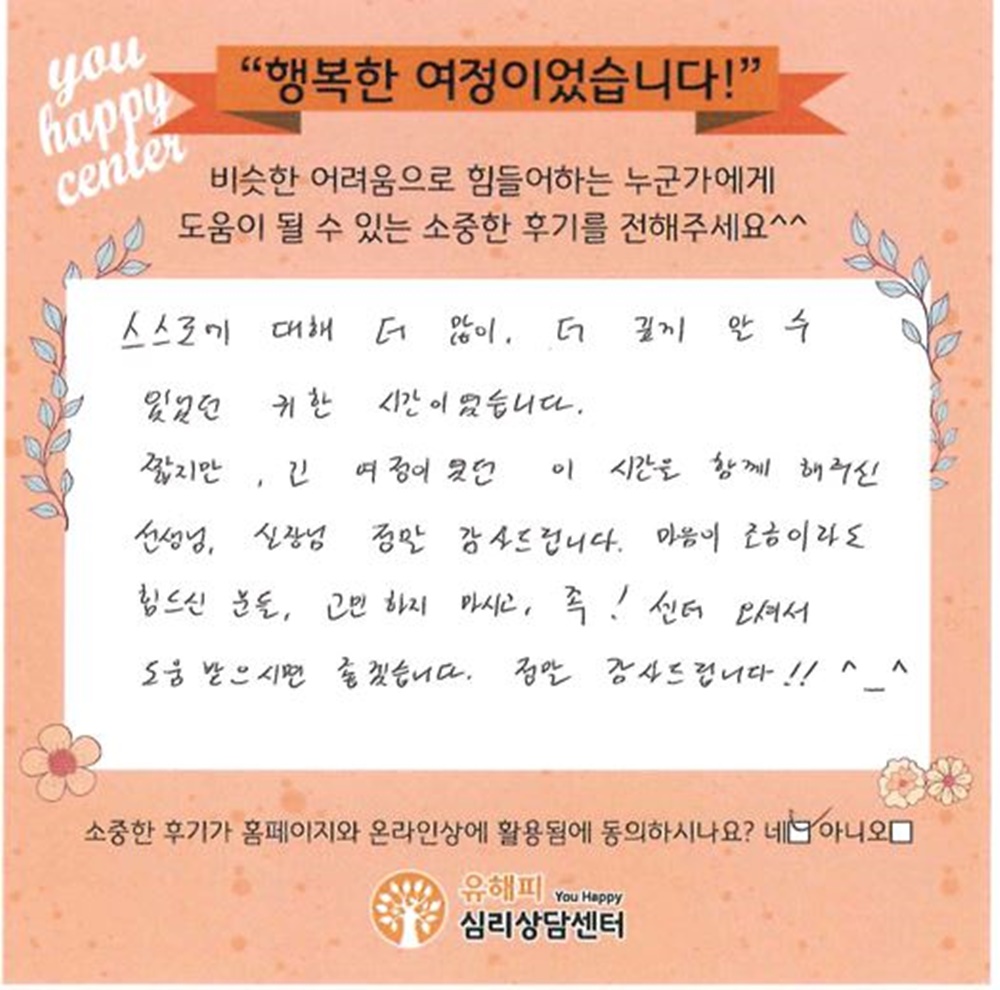 you
happy
center
“행복한 여정이었습니다!”
비슷한 어려움으로 힘들어하는 누군가에게
도움이 될 수 있는 소중한 후기를 전해주세요^^
스스로에 대해 더 많이, 더 깊게 알 수
있었던 귀한 시간이었습니다.
짧지만, 긴 여정이었던 이 시간을 함께 해주신
선생님, 실장님 정말 감사드립니다. 마음이 조금이라도
힘드신 분들, 고민하지 마시고, 족! 센터 오셔서
도움 받으시면 좋겠습니다. 정말 감사드립니다!! ^_^
소중한 후기가 홈페이지와 온라인상에 활용됨에 동의하시나요? 네☑ 아니오☐
유해피 You Happy
심리상담센터